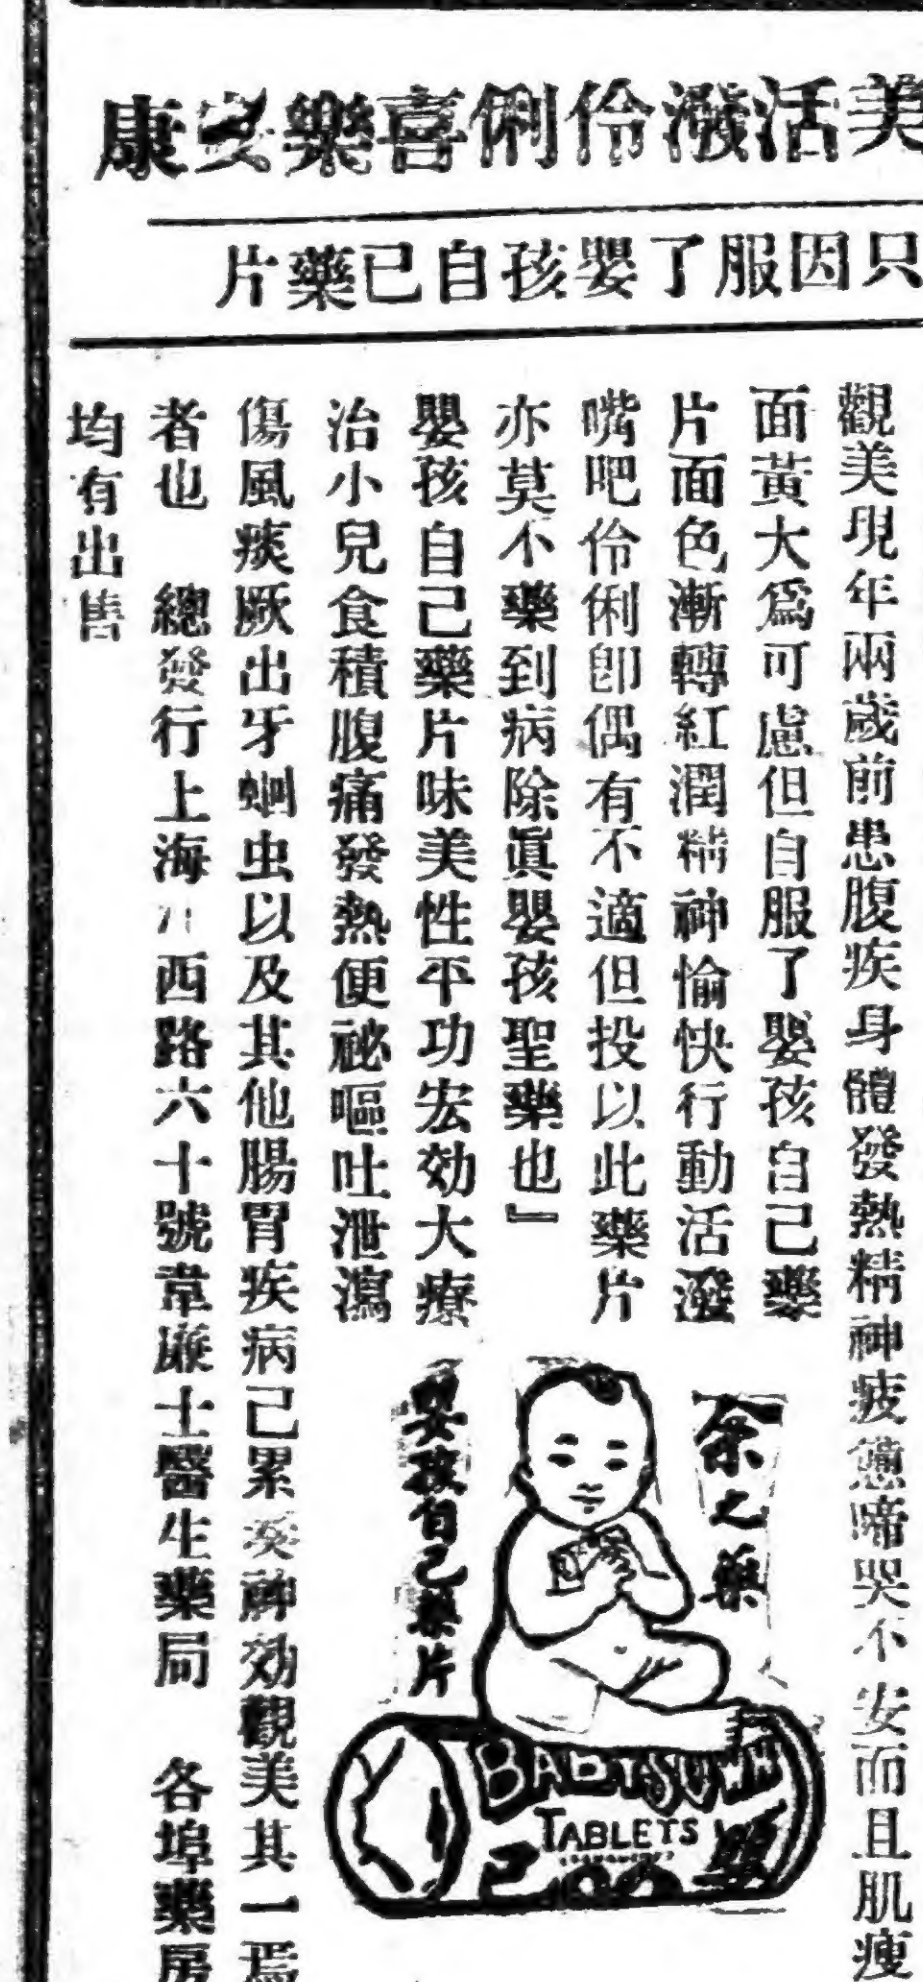 美活潑伶俐喜樂安康
只因服了嬰孩自已藥片
觀美現年兩歲前患腹疾身體發熱精神疲憊啼哭不安而且肌瘦
面黃大為可慮但自服了嬰孩自己藥
片面色漸轉紅潤精神愉快行動活潑
嘴吧伶俐即偶有不適但投以此藥片
亦莫不藥到病除眞嬰孩聖藥也』
嬰孩自己藥片味美性平功宏効大療
治小兒食積腹痛發熱便祕嘔吐泄瀉
傷風痰厥出牙蛔虫以及其他腸胃疾病己累奏神効觀美其一焉
者也 總發行上海 西路六十號韋廉士醫生藥局 各埠藥房
均有出售
余之藥
嬰孩自己藥片
TABLETS
己
嬰